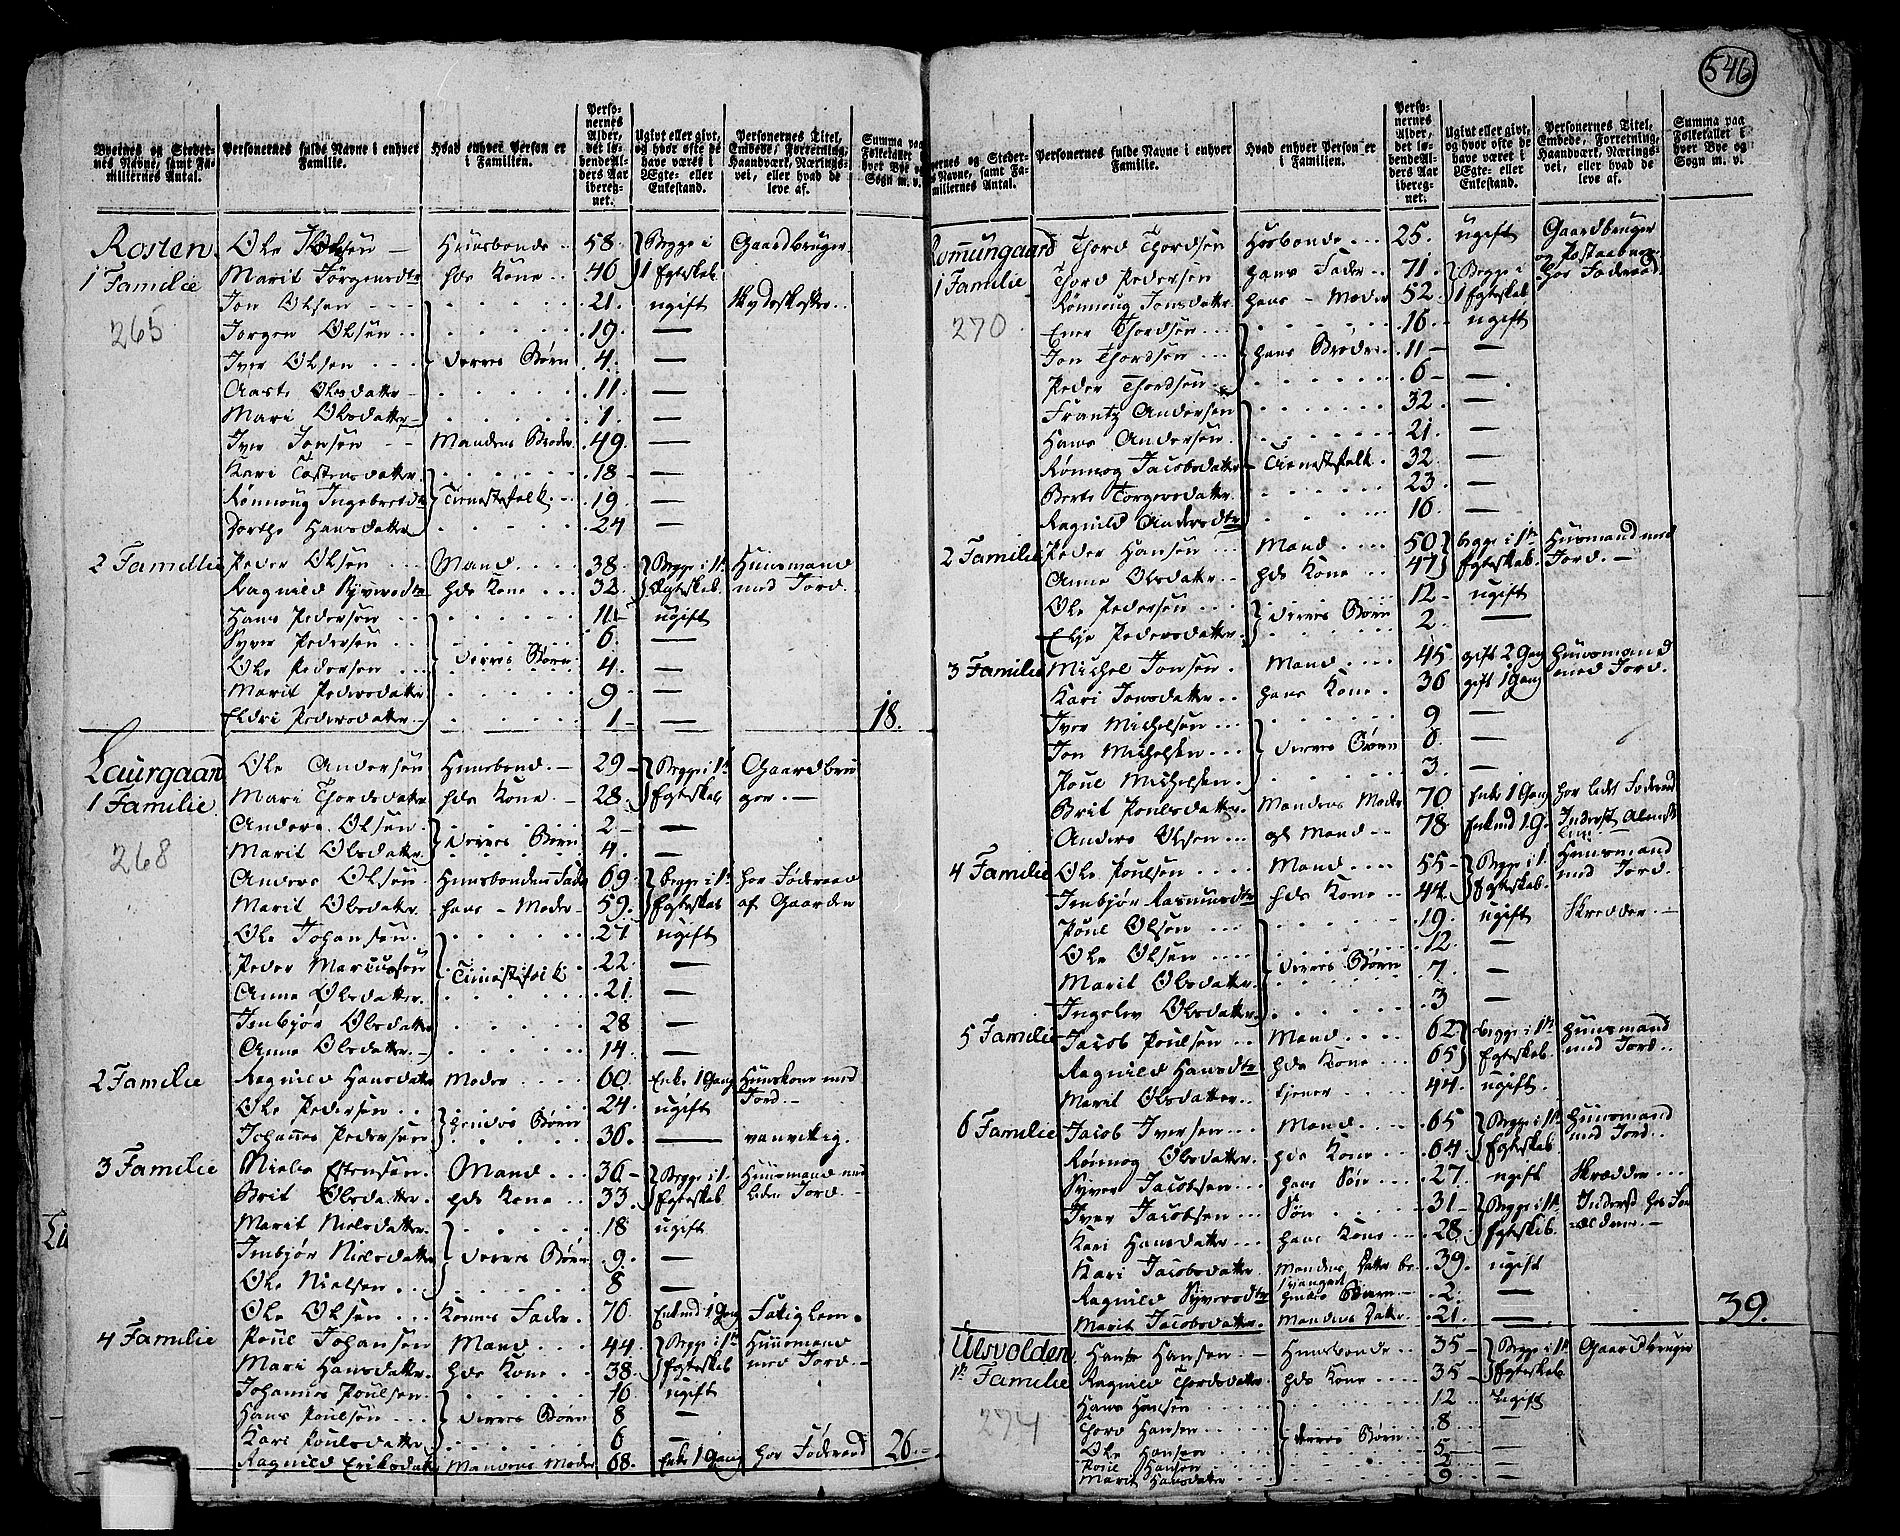 546
Byernes og Stedernes Navne, samt Familiernes Antal. Personernes fulde Navne i enhver Familie. Hvad enhver Person er i Familien. Personernes Alder, det løbende Alders Aar iberegnet. Ugivt eller givt, og hvor ofte de have været i Ægte- eller Enkestand. Personernes Titel, Embede, Forretning, Haandværk, Næringsvei, eller hvad de leve af. Summa paa Folketallet i hver Bye og Sogn m. v.
Rosten Ole Olsen Huusbonde 58 Begge i Gaardbruger
1 Familie Marit Jørgensdtr hds Kone 46 1 Egteskab
Jon Olsen 21 ugift Skydeskaffer
265 Jørgen Olsen 19 —
Iver Olsen derres Børn 4 —
Aaste Olsdatter 11 —
Mari Olsdatter 1 —
Iver Jonsen Mandens Broder 49 —
Kari Tostensdatter 18 —
Rønnoug Ingebretsdtr Tienestefolk 19 —
Dorthe Hansdatter 24 —
2 Familie Peder Olsen Mand 38 Begge i 1te Huusmand
Ragnild Syversdtr hds Kone 32 Egteskab med Jord
Hans Pedersen 11 ugift
Syver Pedersen 6 —
Ole Pedersen derres Børn 4 —
Marit Pedersdatter 9 —
Eldri Pedersdatter 1 — 18.
Laurgaard Ole Andersen Huusbond 29 Begge i 1te Gaardbru
1 Familie Mari Thordsdatter hds Kone 28 Egteskab ger
Anders Olsen 2 —
268 Marit Olsdatter derres Børn 4 —
Anders Olsen Huusbondens Fader 69 begge i 1te har Føderaad
Marit Olsdatter hans Moder 59 Egteskab af Gaarden
Ole Johansen 27 ugift
Peder Marcusen Tienestefolk 22 —
Anne Olsdatter 21 —
Imbjør Olsdatter 28 —
Anne Olsdatter 14 —
2 Familie Ragnild Hansdatter Moder 60 Enke 1 Gang Huuskone med
Ole Pedersen hendes Børn 24 ugift Jord
Johannes Pedersen 36 — vanvittig
3 Familie Niels Estensen Mand 36 Begge i 1 Huusmand med
Brit Olsdatter hds Kone 33 Egteskab liden Jord
Marit Nielsdatter 18 ugift
Imbjør Nielsdatter derres Børn 9 —
Ole Nielsen 8 —
Ole Olsen Konens Fader 76 Enkmd 1 Gang Fatig lem
4 Familie Poul Johansen Mand 44 Begge i 1te Huusmand
Mari Hansdatter hds Kone 38 Egteskab med Jord
Johannes Poulsen 16 ugift
Hans Poulsen derres Børn 8 —
Kari Poulsdatter 6 —
Ragnild Eriksdatter Mandens Moder 68 Enke 1 Gang har Føderaad 26
Byernes og Stedernes Navne, samt Familiernes Antal. Personernes fulde Navne i enhver Familie. Hvad enhver Person er i Familien. Personernes Alder, det løbende Alders Aar iberegnet. Ugivt eller givt, og hvor ofte de have været i Ægte- eller Enkestand. Personernes Titel, Embede, Forretning, Haandværk, Næringsvei, eller hvad de leve af. Summa paa Folketallet i hver Bye og Sogn m. v.
Romungaard Thord Thordsen Hosbonde 25 ugift Gaardbruger
1 Familie Thord Pedersen hans Fader 71 Begge i har Føderaad
Rønnoug Jonsdatter hans Moder 52 1 Egteskab
270 Ener Thordsen 16 ugift
Jon Thordsen hans Brødre 11 —
Peder Thordsen 6 —
Frantz Andersen 32 —
Hans Andersen 21 —
Rønnog Jacobsdatter Tienestefolk 32 —
Berte Torgersdatter 23 —
Ragnild Andersdtr 16
2 Familie Peder Hansen Mand 50 begge i 1te Huusmand med
Anne Olsdatter hds Kone 47 Egteskab Jord
Ole Pedersen 12 ugift
Elje Pedersdatter derres Børn 2 —
3 Familie Michel Jonsen Mand 45 gift 2 Gang Huusmand
Kari Jonsdatter hans Kone 36 gift 1 Gang med Jord
Iver Michelsen 9 —
Jon Michelsen derres Børn 8 —
Poul Michelsen 3 —
Brit Poulsdatter Mandens Moder 70 Enke 1 Gang har lidt Føderaad
Anders Olsen gl Mand 78 Enkmd 1 G Inderst Almisselem
4 Familie Ole Poulsen Mand 55 Begge i 1 Huusmand
Imbjør Rasmusdtr hds Kone 44 Egteskab med Jord
Poul Olsen 19 ugift Skredder
Ole Olsen 12 —
Marit Olsdatter derres Børn 7 —
Ingelev Olsdatter 3 —
5 Familie Jacob Poulsen Mand 62 begge i 1te Huusmand
Ragnild Hansdtr hds Kone 65 Egteskab med Jord
Marit Olsdatter tjener 44 ugift
6 Familie Jacob Iversen Mand 65 Begge i 1te Huusmand
Rønnog Olsdatter hds Kone 64 Egteskab med Jord
Syver Jacobsen hans Søn 27 ugift Skrædder
Iver Jacobsen Søn 31 Begge i 1te Inderst hos For
Kari Hansdatter hans Kone 28 Egteskab ældrene
Kari Jacobsdatter Mandens Datter 39 ugift
Ragnild Syversdtr hendes Barn 2 —
Marit Jacobsdatter Mandens Datter 21 — 39.
Ulsvolden Hans Hansen Huusbonde 35 Begge i 1te Gaardbruger
1te Familie Ragnild Thordsdatter hds Kone 35 Egteskab
Hans Hansen 12 Ugift
274 Thord Hansen 8 —
Ole Hansen derres Børn 5 —
Poul Hansen 2 —
Marit Hansdatter 9 —